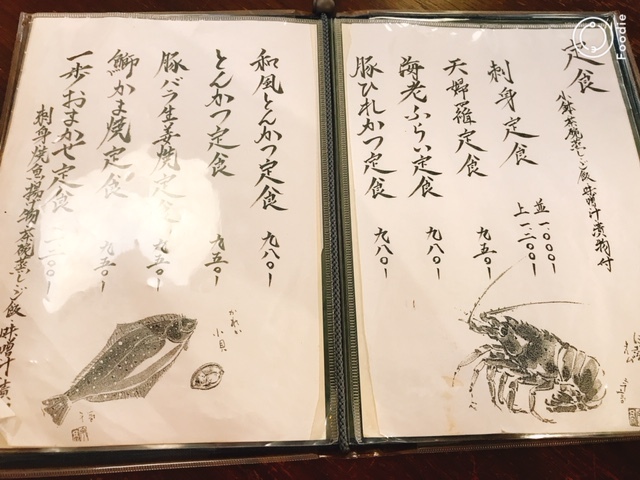 定食
小鉢・茶碗蒸し・ご飯・味噌汁・漬物付
刺身定食
並 一、〇〇〇ー
上 一、二〇〇ー
天婦羅定食 九五〇ー
海老ふらい定食 九八〇ー
豚ひれかつ定食 九八〇ー
和風とんかつ定食 九八〇ー
とんかつ定食 九五〇ー
豚バラ生姜焼定食 九五〇ー
鰤かま焼定食 九五〇ー
一歩おまかせ定食
刺身・焼魚・揚物・茶碗蒸し・ご飯・味噌汁・漬
かれい
小貝
Foodie